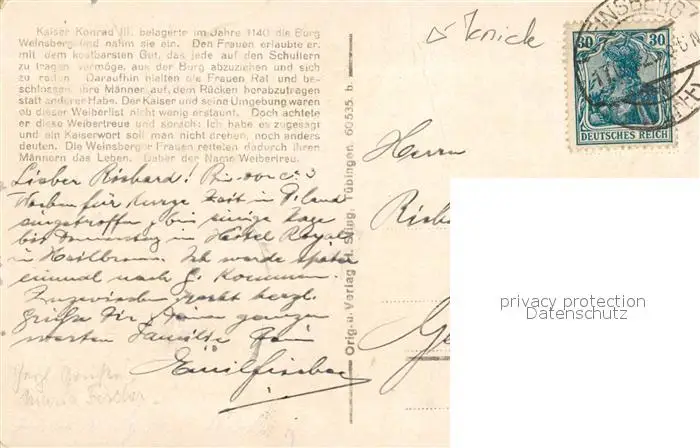 Kaiser Konrad III. belagerte im Jahre 1140 die Burg
Weinsberg und nahm sie ein. Den Frauen erlaubte er,
mit dem kostbarsten Gut, das jede auf den Schultern
zu tragen vermöge, aus der Burg abzuziehen und sich
zu retten. Daraufhin hielten die Frauen Rat und be-
schlossen, ihre Männer auf dem Rücken herabzutragen
statt anderer Habe. Der Kaiser und seine Umgebung waren
ob dieser Weiberlist nicht wenig erstaunt. Doch achtete
er diese Weibertreue und sprach: Ich habe es zugesagt
und ein Kaiserwort soll man nicht drehen, noch anders
deuten. Die Weinsberger Frauen retteten dadurch ihren
Männern das Leben. Daher der Name Weibertreu.
Knick
WEINSBERG
30 30
DEUTSCHES REICH
Lieber Richard!
Soeben für kurze Zeit in
eingetroffen, bin einige Tage
bis Donnerstag in Hotel Royal
in Heilbronn. Ich werde später
einmal nach G. kommen.
Inzwischen herzl.
Grüße Dir, Deiner ganzen
werten Familie Dein
Emil Fischer
Maria Fischer
Orig.-u. Verlag Tübingen. 60535 b.
Herrn
privacy protection
Datenschutz